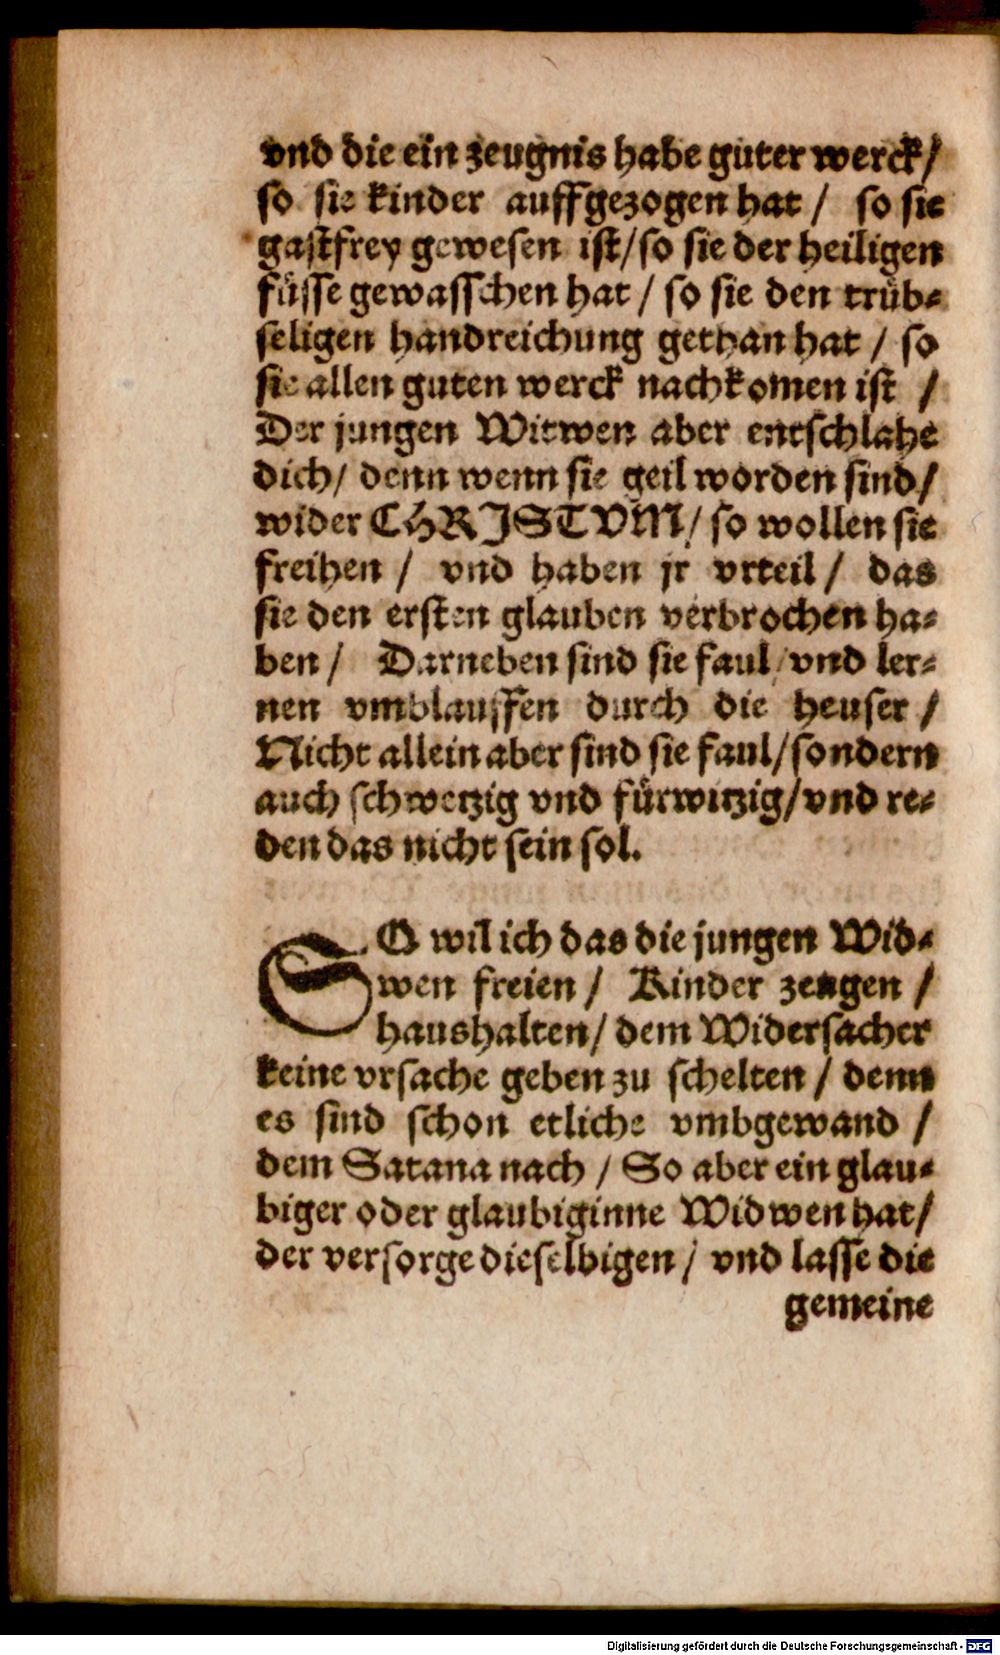 vnd die ein zeugnis habe guter werck/
so sie kinder auffgezogen hat / so sie
gastfrey gewesen ist/so sie der heiligen
füsse gewasschen hat / so sie den trüb-
seligen handreichung gethan hat / so
sie allen guten werck nachkomen ist /
Der jungen Witwen aber entschlahe
dich/ denn wenn sie geil worden sind/
wider CHRISTVM/ so wollen sie
freihen / vnd haben jr vrteil / das
sie den ersten glauben verbrochen ha-
ben / Darneben sind sie faul/vnd ler-
nen vmblauffen durch die heuser /
Nicht allein aber sind sie faul/sondern
auch schwetzig vnd fürwitzig/vnd re-
den das nicht sein sol.
SO wil ich das die jungen Wid-
wen freien / Kinder zeugen /
haushalten/ dem Widersacher
keine vrsache geben zu schelten / denn
es sind schon etliche vmbgewand /
dem Satana nach / So aber ein glau-
biger oder glaubiginne Widwen hat/
der versorge dieselbigen/ vnd lasse die
gemeine
Digitalisierung gefördert durch die Deutsche Forschungsgemeinschaft - DFG